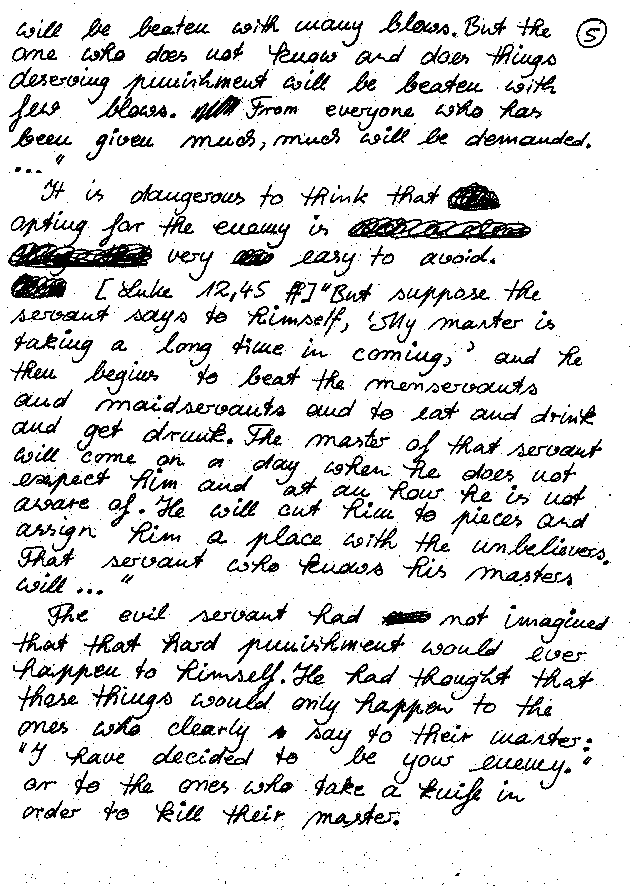 will be beaten with many blows. But the
one who does not know and does things
deserving punishment will be beaten with
few blows. From everyone who has
been given much, much will be demanded.
..."
It is dangerous to think that
opting for the enemy is
very easy to avoid.
[Luke 12,45 ff] "But suppose the
servant says to himself, 'My master is
taking a long time in coming,' and he
then begins to beat the menservants
and maidservants and to eat and drink
and get drunk. The master of that servant
will come on a day when he does not
expect him and at an hour he is not
aware of. He will cut him to pieces and
assign him a place with the unbelievers.
That servant who knows his masters
will ... "
The evil servant had not imagined
that that hard punishment would ever
happen to himself. He had thought that
those things would only happen to the
ones who clearly say to their master:
"I have decided to be your enemy."
or to the ones who take a knife in
order to kill their master.
5